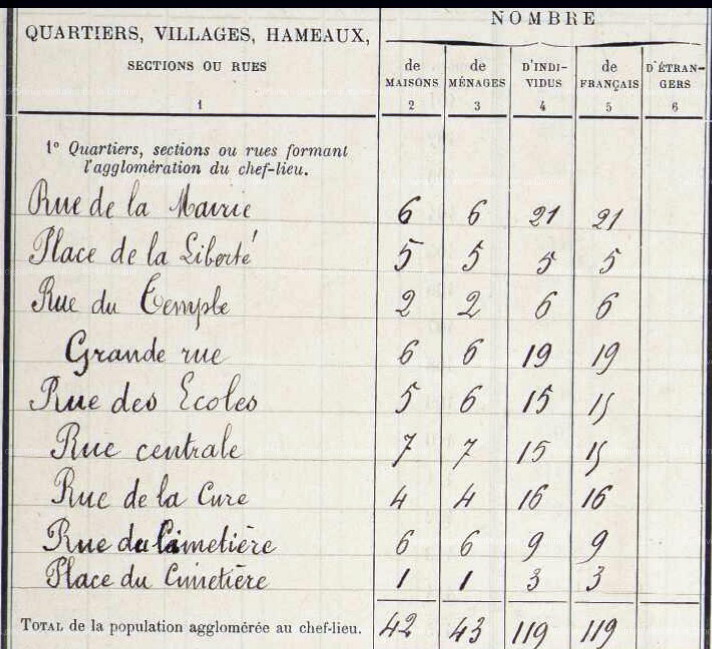 QUARTIERS, VILLAGES, HAMEAUX,
SECTIONS OU RUES
1
NOMBRE
de MAISONS 2
de MÉNAGES 3
D'INDI-VIDUS 4
de FRANÇAIS 5
D'ÉTRAN-GERS 6
1° Quartiers, sections ou rues formant
l'agglomération du chef-lieu.
Rue de la Mairie 6 6 21 21
Place de la Liberté 5 5 5 5
Rue du Temple 2 2 6 6
Grande rue 6 6 19 19
Rue des Ecoles 5 6 15 15
Rue centrale 7 7 15 15
Rue de la Cure 4 4 16 16
Rue du Cimetière 6 6 9 9
Place du Cimetière 1 1 3 3
TOTAL de la population agglomérée au chef-lieu. 42 43 119 119